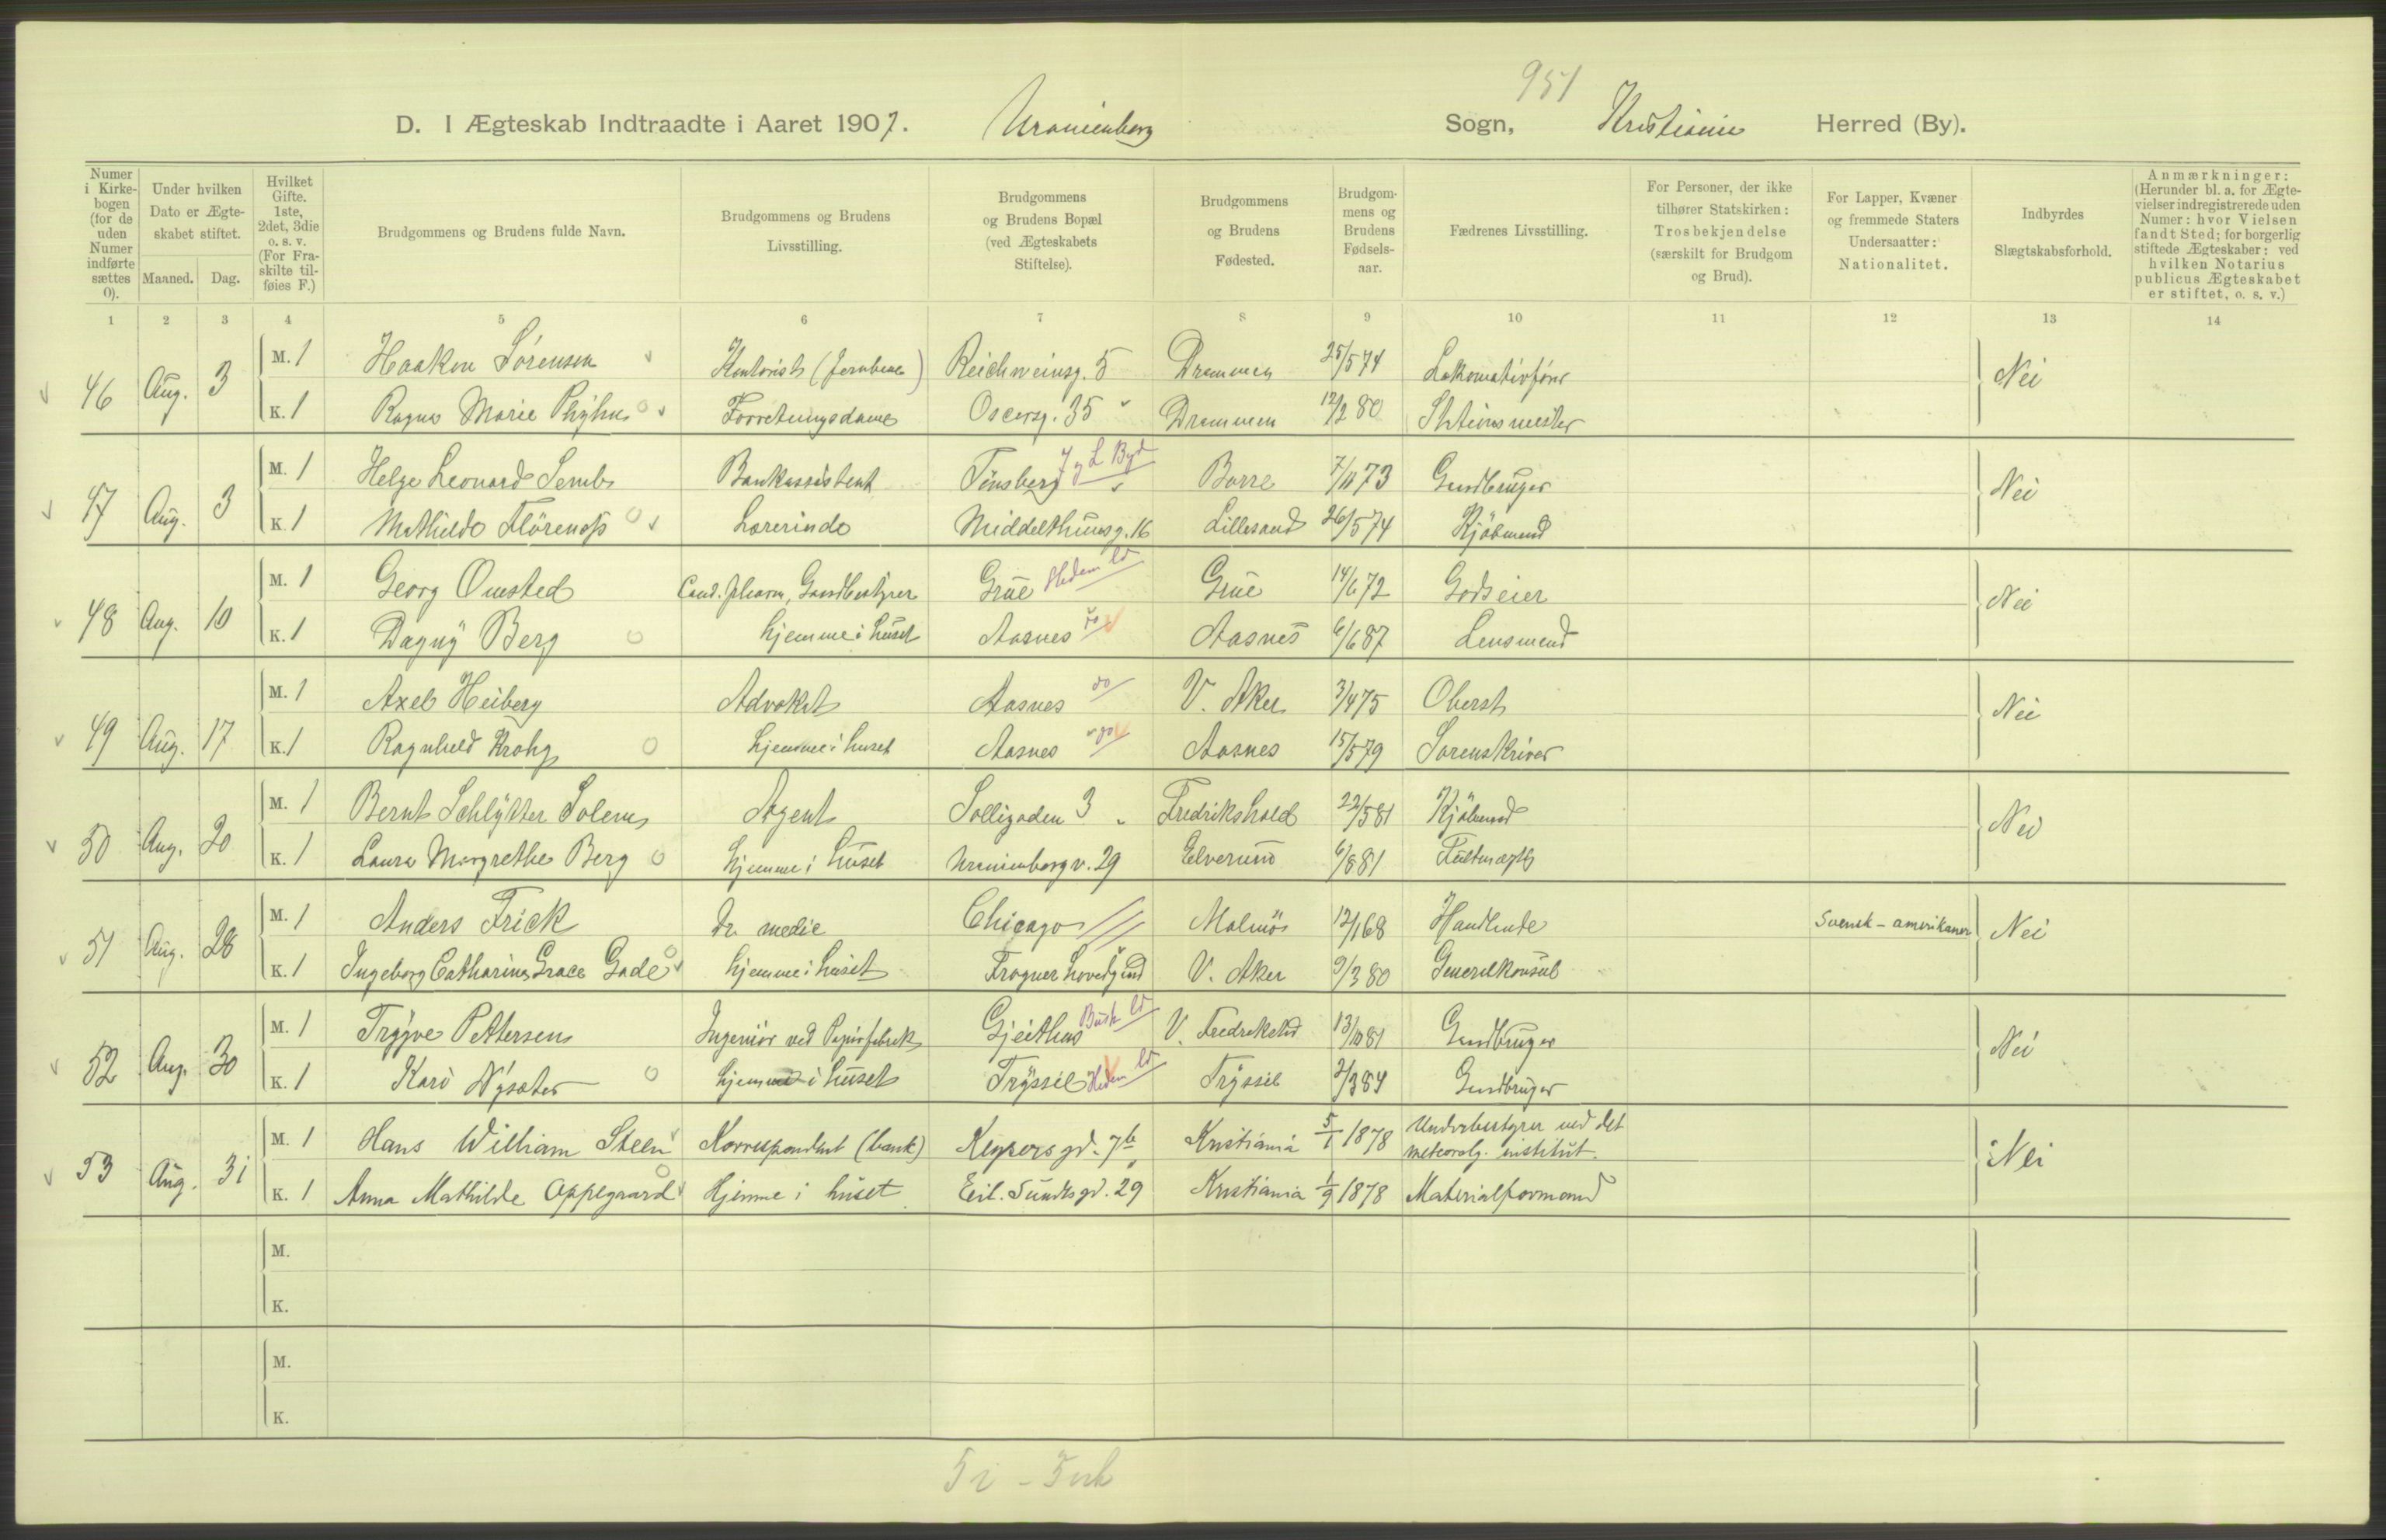 951
D. I Ægteskab Indtraadte i Aaret 1907. Uranienborg Sogn, Kristiania Herred (By).
Numer i Kirkebogen (for de uden Numer indførte sættes 0).
Under hvilken Dato er Ægteskabet stiftet.
Maaned. Dag.
Hvilket Gifte. 1ste, 2det, 3die o. s. v. (For Fraskilte tilføies F.)
Brudgommens og Brudens fulde Navn.
Brudgommens og Brudens Livsstilling.
Brudgommens og Brudens Bopæl (ved Ægteskabets Stiftelse).
Brudgommens og Brudens Fødested.
Brudgommens og Brudens Fødselsaar.
Fædrenes Livsstilling.
For Personer, der ikke tilhører Statskirken: Trosbekjendelse (særskilt for Brudgom og Brud).
For Lapper, Kvæner og fremmede Staters Undersaatter: Nationalitet.
Indbyrdes Slægtskabsforhold.
Anmærkninger: (Herunder bl. a. for Ægtevielser indregistrerede uden Numer: hvor Vielsen fandt Sted; for borgerlig stiftede Ægteskaber: ved hvilken Notarius publicus Ægteskabet er stiftet, o. s. v.)
1 2 3 4 5 6 7 8 9 10 11 12 13 14
46 Aug. 3 M. 1 Haakon Sörensen Kontorist (Jernbane) Reichweinsg. 5 Drammen 25/5 74 Lokomotivförer Nei
K. 1 Ragna Marie Forretningsdame Oscarsg. 35 Drammen 12/2 80 Stationsmester
47 Aug. 3 M. 1 Helge Leonard Semb Bankassistent Tönsberg J og L Byd Borre 7/11 73 Gaardbruger Nei
K. 1 Mathilde Flörenäss Lærerinde Middelthunsg. 16 Lillesand 26/5 74 Kjöbmand
48 Aug. 10 M. 1 Georg Omsted Cand. pharm, Gaardbestyrer Grüe Hedem ld Grüe 14/6 72 Godseier Nei
K. 1 Dagny Berg hjemme i huset Aasnes do Aasnes 6/6 87 Lensmand
49 Aug. 17 M. 1 Axel Heiberg Advokat Aasnes do V. Aker 3/4 75 Oberst Nei
K. 1 Ragnhild Krohg hjemme i huset Aasnes do Aasnes 15/5 79 Sorenskriver
50 Aug. 20 M. 1 Bernt Schlytter Solem Agent Solligaden 3 Fredrikshald 22/5 81 Kjöbmand Nei
K. 1 Laura Margrethe Berg hjemme i huset Uranienborgv. 29 Elverum 6/8 81 Fuldmægtig
51 Aug. 28 M. 1 Anders Frick Dr. medic Chicago Malmö 12/1 68 Handlende Svensk-amerikaner Nei
K. 1 Ingeborg Catharina Grace Gade hjemme i huset Frogner hovedgaard V. Aker 9/3 80 Generalkonsul
52 Aug. 30 M. 1 Trygve Pettersen Ingeniör ved Papirfabrik Gjeithus Busk ld V. Fredrikstad 13/10 81 Gaardbruger Nei
K. 1 Kari Nysæter hjemme i huset Tryssil Hedem ld Tryssil 2/3 84 Gaardbruger
53 Aug. 31 M. 1 Hans William Steen Korrespondent (bank) Keysers gd. 7b Kristiania 5/1 1878 Underbestyrer ved det meteorolg. institut. Nei
K. 1 Anna Mathilde Oppegaard Hjemme i huset Eil. Sundts gd. 29 Kristiania 1/9 1878 Materialformand
M.
K.
M.
K.